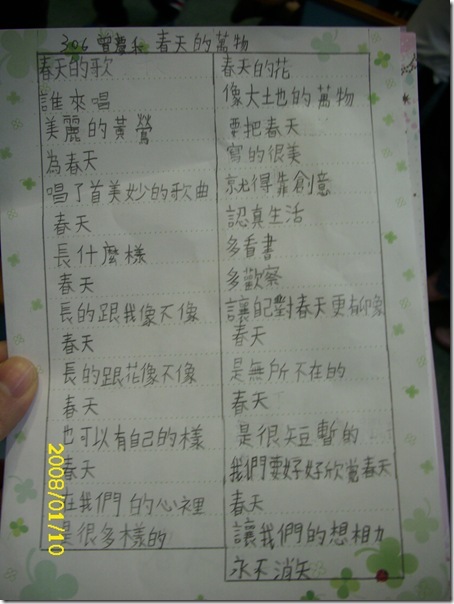 306 曾慶 春天的萬物
春天的歌
誰來唱
美麗的黃鶯
為春天
唱了首美妙的歌曲
春天
長什麼樣
春天
長的跟我像不像
春天
長的跟花像不像
春天
也可以有自己的樣
春天
在我們的心裡
是很多樣的
春天的花
像大土也的萬物
要把春天
寫的很美
就得靠創意
認真生活
多看書
多歡察
讓自己對春天更有印像
春天
是無所不在的
春天
是很短暫的
我們要好好欣賞春天
春天
讓我們的想相力
永不消失
2008/01/10